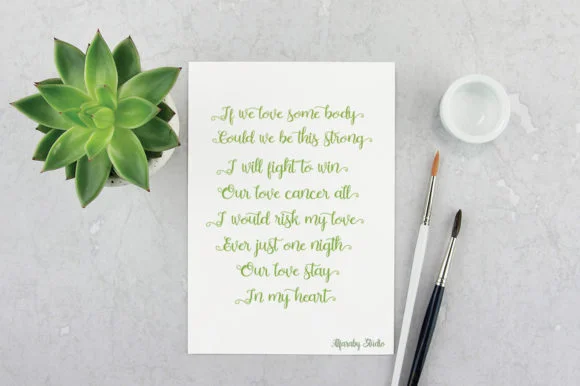 If we love some body
Could we be this strong
I will fight to win
Our love cancer all
I would risk my love
Ever just one nigth
Our love stay
In my heart
Alfaraby Studio